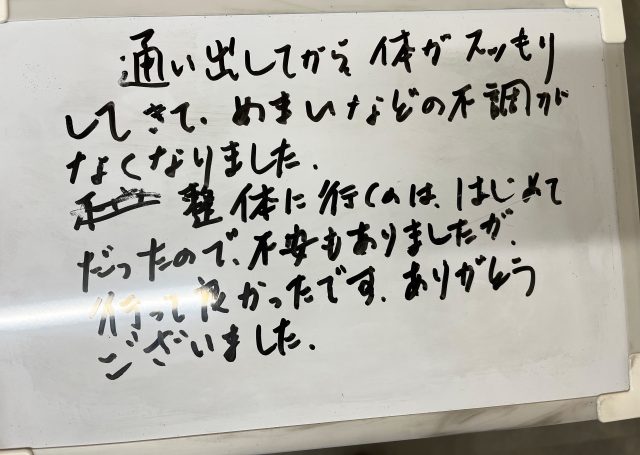 通い出してから 体が スッもり
してきて、めまいなどの不調が
なくなりました.
整体に行くのは、はじめて
だったので、不安もありましたが、
行って良かったです。ありがとう
ございました.